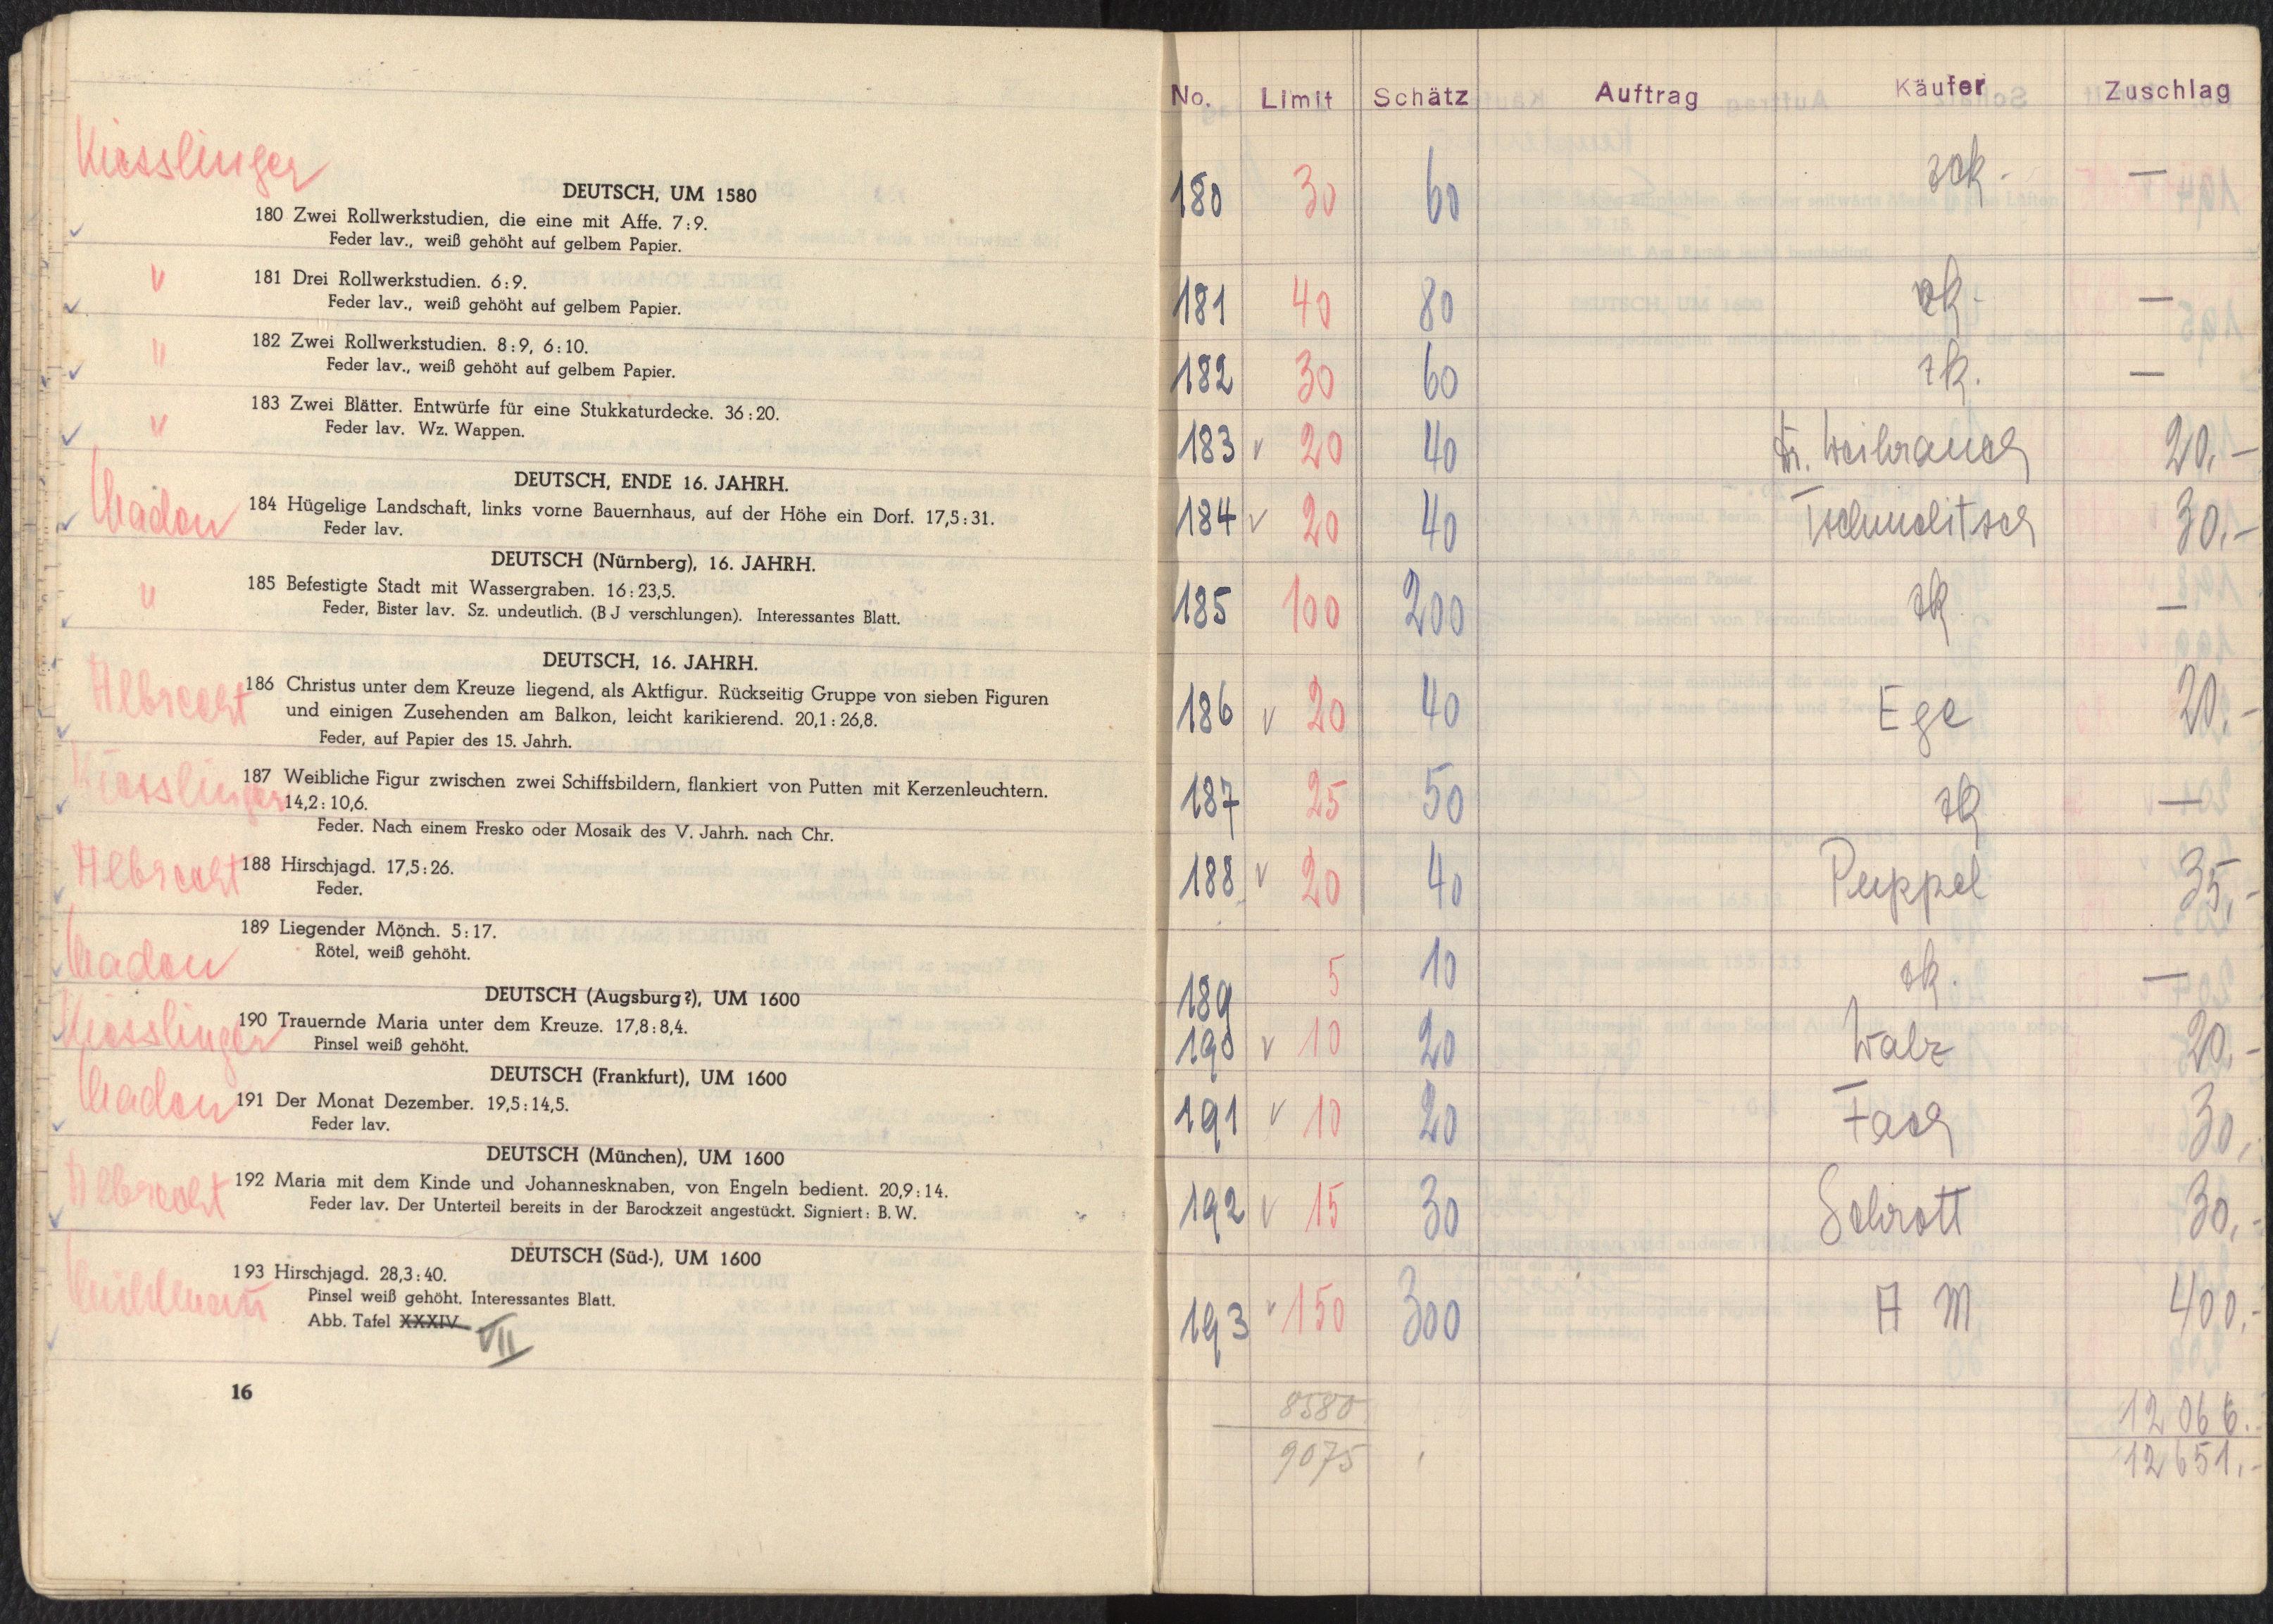 Kiesslinger
DEUTSCH, UM 1580
180 Zwei Rollwerkstudien, die eine mit Affe. 7:9.
Feder lav., weiß gehöht auf gelbem Papier.
"
181 Drei Rollwerkstudien. 6:9.
Feder lav., weiß gehöht auf gelbem Papier.
"
182 Zwei Rollwerkstudien. 8:9, 6:10.
Feder lav., weiß gehöht auf gelbem Papier.
"
183 Zwei Blätter. Entwürfe für eine Stukkaturdecke. 36:20.
Feder lav. Wz. Wappen.
DEUTSCH, ENDE 16. JAHRH.
184 Hügelige Landschaft, links vorne Bauernhaus, auf der Höhe ein Dorf. 17,5:31.
Feder lav.
DEUTSCH (Nürnberg), 16. JAHRH.
"
185 Befestigte Stadt mit Wassergraben. 16:23,5.
Feder, Bister lav. Sz. undeutlich. (B J verschlungen). Interessantes Blatt.
DEUTSCH, 16. JAHRH.
Albrecht
186 Christus unter dem Kreuze liegend, als Aktfigur. Rückseitig Gruppe von sieben Figuren
und einigen Zusehenden am Balkon, leicht karikierend. 20,1:26,8.
Feder, auf Papier des 15. Jahrh.
Kiesslinger
187 Weibliche Figur zwischen zwei Schiffsbildern, flankiert von Putten mit Kerzenleuchtern.
14,2:10,6.
Feder. Nach einem Fresko oder Mosaik des V. Jahrh. nach Chr.
Albrecht
188 Hirschjagd. 17,5:26.
Feder.
189 Liegender Mönch. 5:17.
Rötel, weiß gehöht.
DEUTSCH (Augsburg?), UM 1600
Kiesslinger
190 Trauernde Maria unter dem Kreuze. 17,8:8,4.
Pinsel weiß gehöht.
DEUTSCH (Frankfurt), UM 1600
191 Der Monat Dezember. 19,5:14,5.
Feder lav.
DEUTSCH (München), UM 1600
Albrecht
192 Maria mit dem Kinde und Johannesknaben, von Engeln bedient. 20,9:14.
Feder lav. Der Unterteil bereits in der Barockzeit angestückt. Signiert: B. W.
DEUTSCH (Süd-), UM 1600
193 Hirschjagd. 28,3:40.
Pinsel weiß gehöht. Interessantes Blatt.
Abb. Tafel XXXIV VII
16
No. Limit Schätz Auftrag Käufer Zuschlag
180 30 60 zok. —
181 40 80 zk. —
182 30 60 zk. —
183 v 20 40 Dr. Weihrauch 20.-
184 v 20 40 30.-
185 100 200 zk —
186 v 20 40 Ege 20.-
187 25 50 zk —
188 v 20 40 Puppel 35,-
189 5 10 zk. —
190 v 10 20 Walz 20.-
191 v 10 20 Fach 30,
192 v 15 30 Schrott 30.-
193 v 150 300 A M 400.-
8580 12 066.-
9075 12 651.-